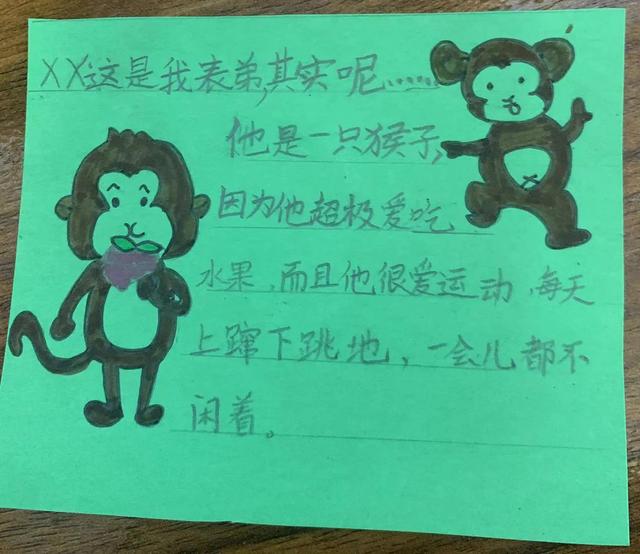 XX这是我表弟,其实呢……
他是一只猴子,
因为他超极爱吃
水果,而且他很爱运动,每天
上蹿下跳地,一会儿都不
闲着。